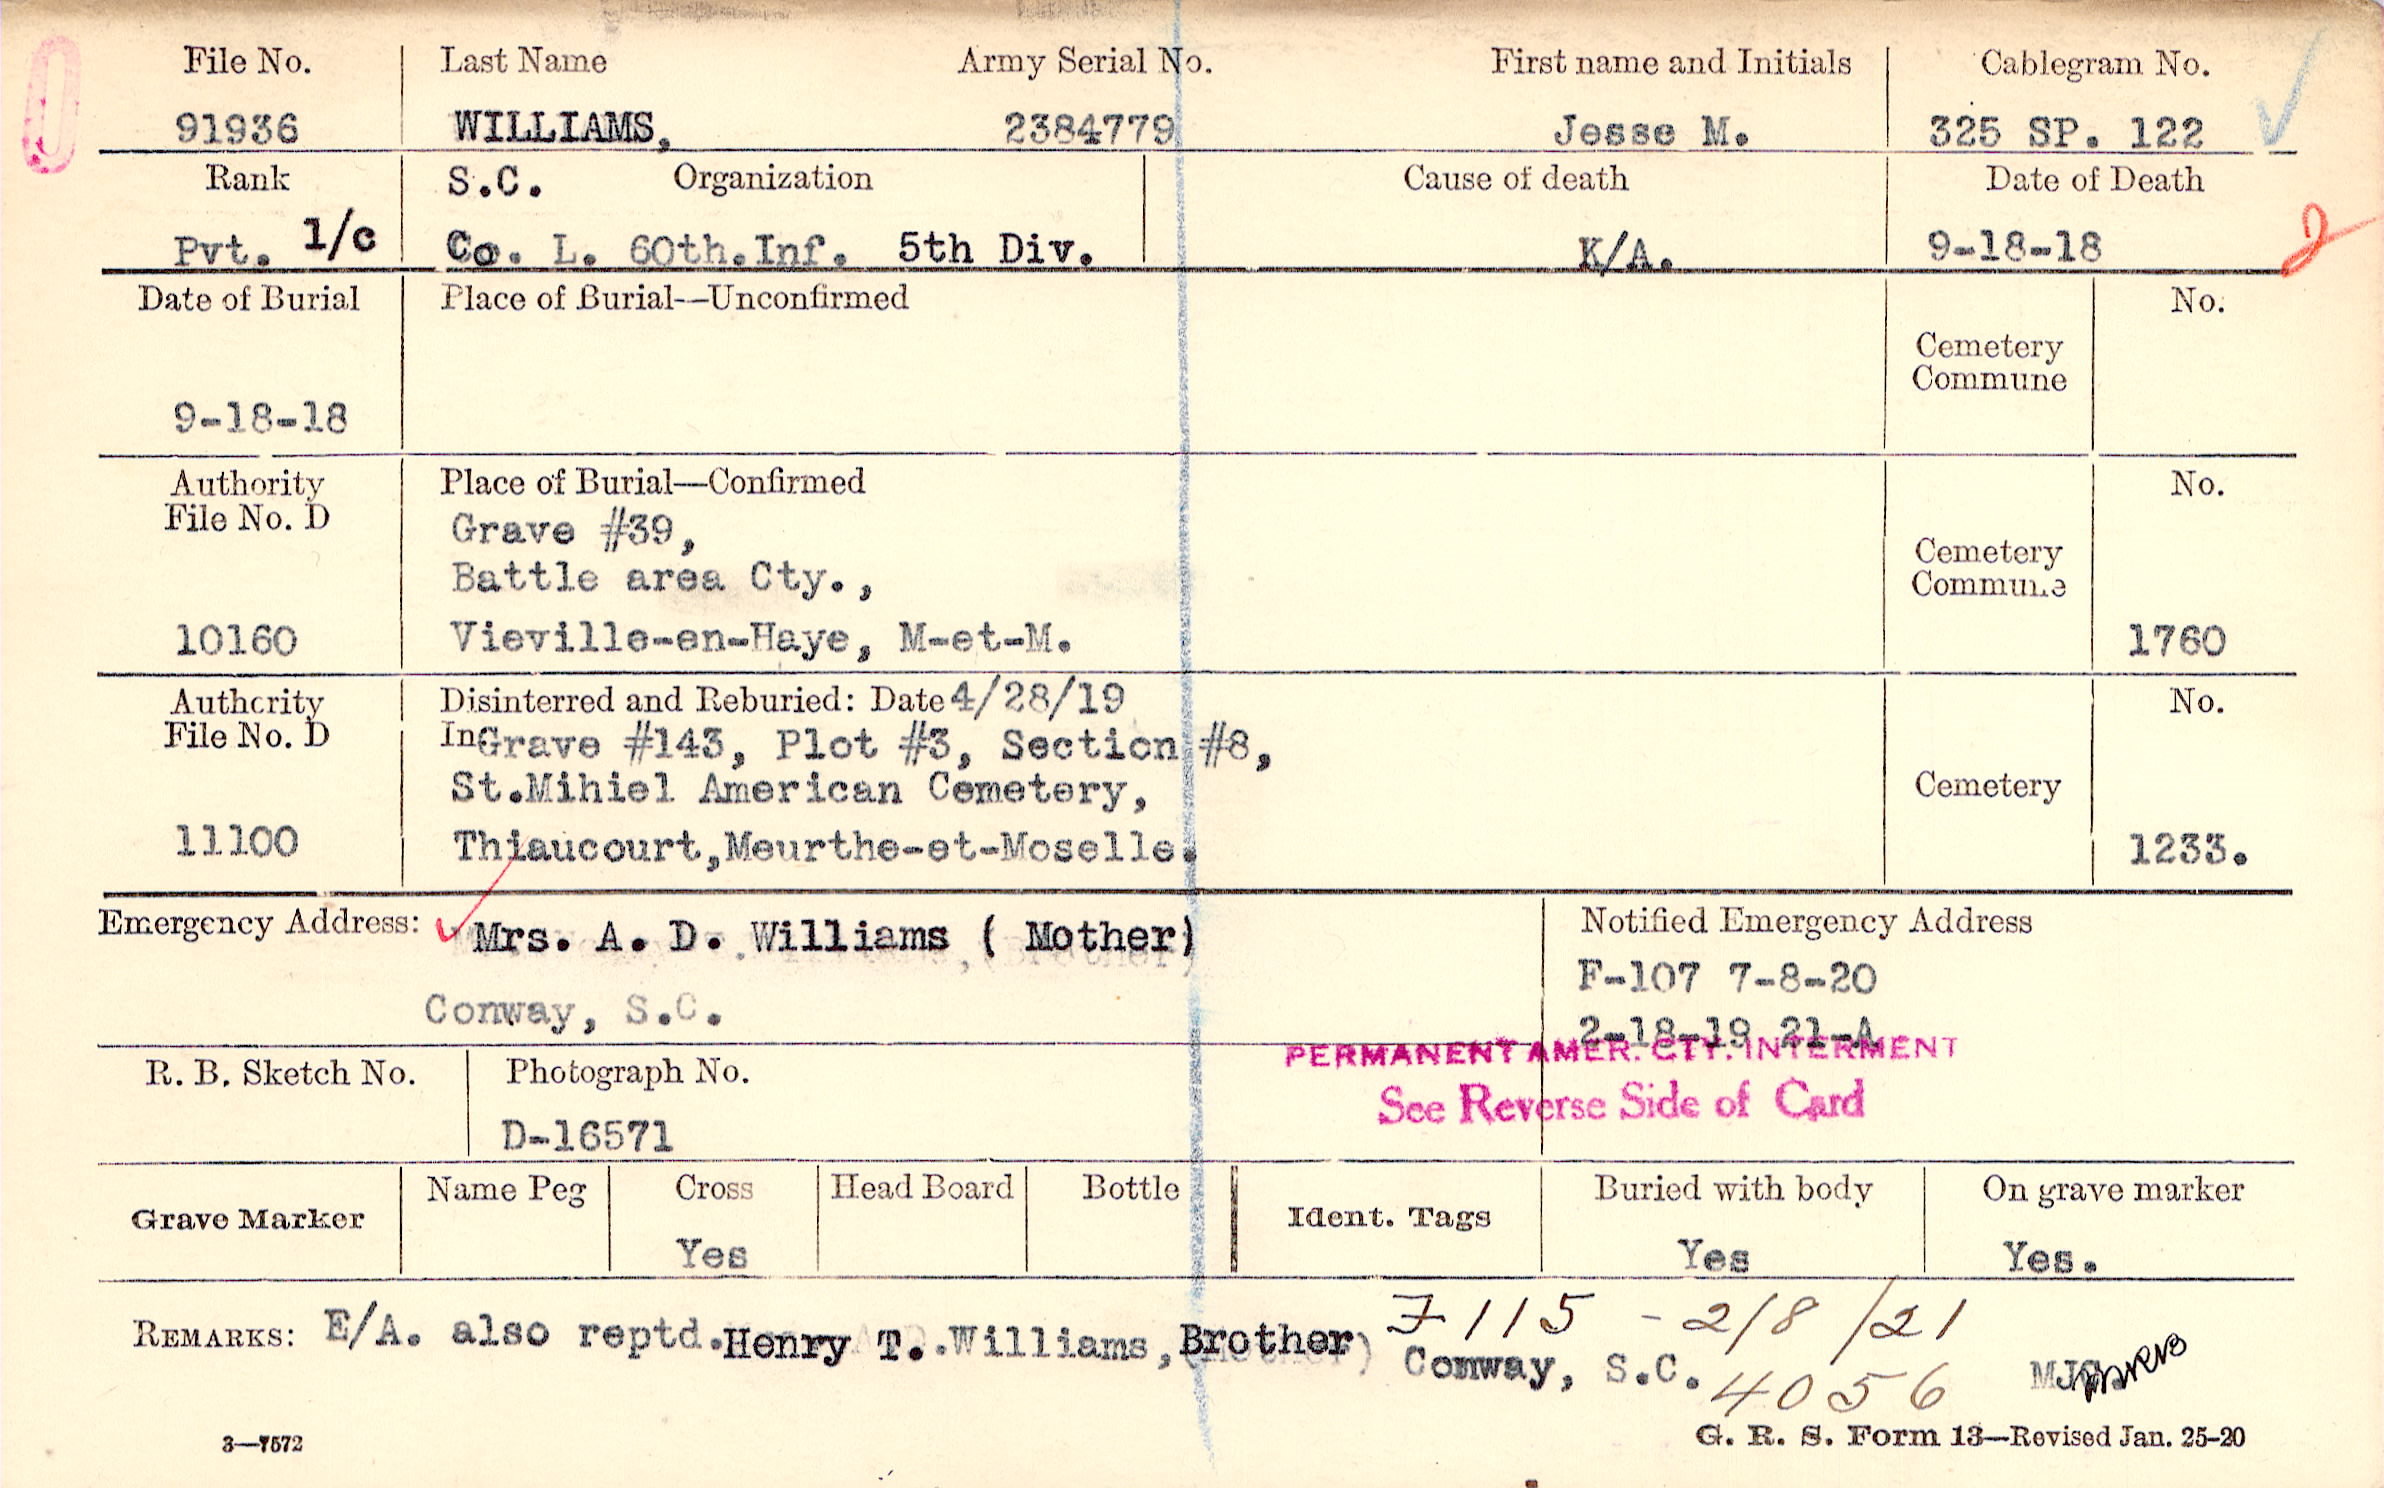 File No. Last Name Army Serial No. First name and Initials Cablegram No.
91936 WILLIAMS, 2384779 Jesse M. 325 SP. 122
Rank S.C. Organization Cause of death Date of Death
Pvt. 1/c Co. L. 60th.Inf. 5th Div. K/A. 9-18-18
Date of Burial Place of Burial—Unconfirmed No.
Cemetery
Commune
9-18-18
Authority Place of Burial—Confirmed No.
File No. D Grave #39,
Cemetery
Battle area Cty., Commune
10160 Vieville-en-Haye, M-et-M. 1760
Authority Disinterred and Reburied: Date 4/28/19 No.
File No. D In Grave #143, Plot #3, Section #8,
St.Mihiel American Cemetery, Cemetery
11100 Thiaucourt,Meurthe-et-Moselle. 1233.
Emergency Address: Mrs. A. D. Williams ( Mother) Notified Emergency Address
F-107 7-8-20
Conway, S.C.
2-18-19 21-A
PERMANENT AMER. CTY. INTERMENT
R. B. Sketch No. Photograph No.
See Reverse Side of Card
D-16571
Name Peg Cross Head Board Bottle Buried with body On grave marker
Grave Marker Ident. Tags
Yes Yes Yes.
F115 - 2/8/21
REMARKS: E/A. also reptd. Henry T. Williams, Brother)
Conway, S.C. 4056
3—7572 G. R. S. Form 13—Revised Jan. 25-20